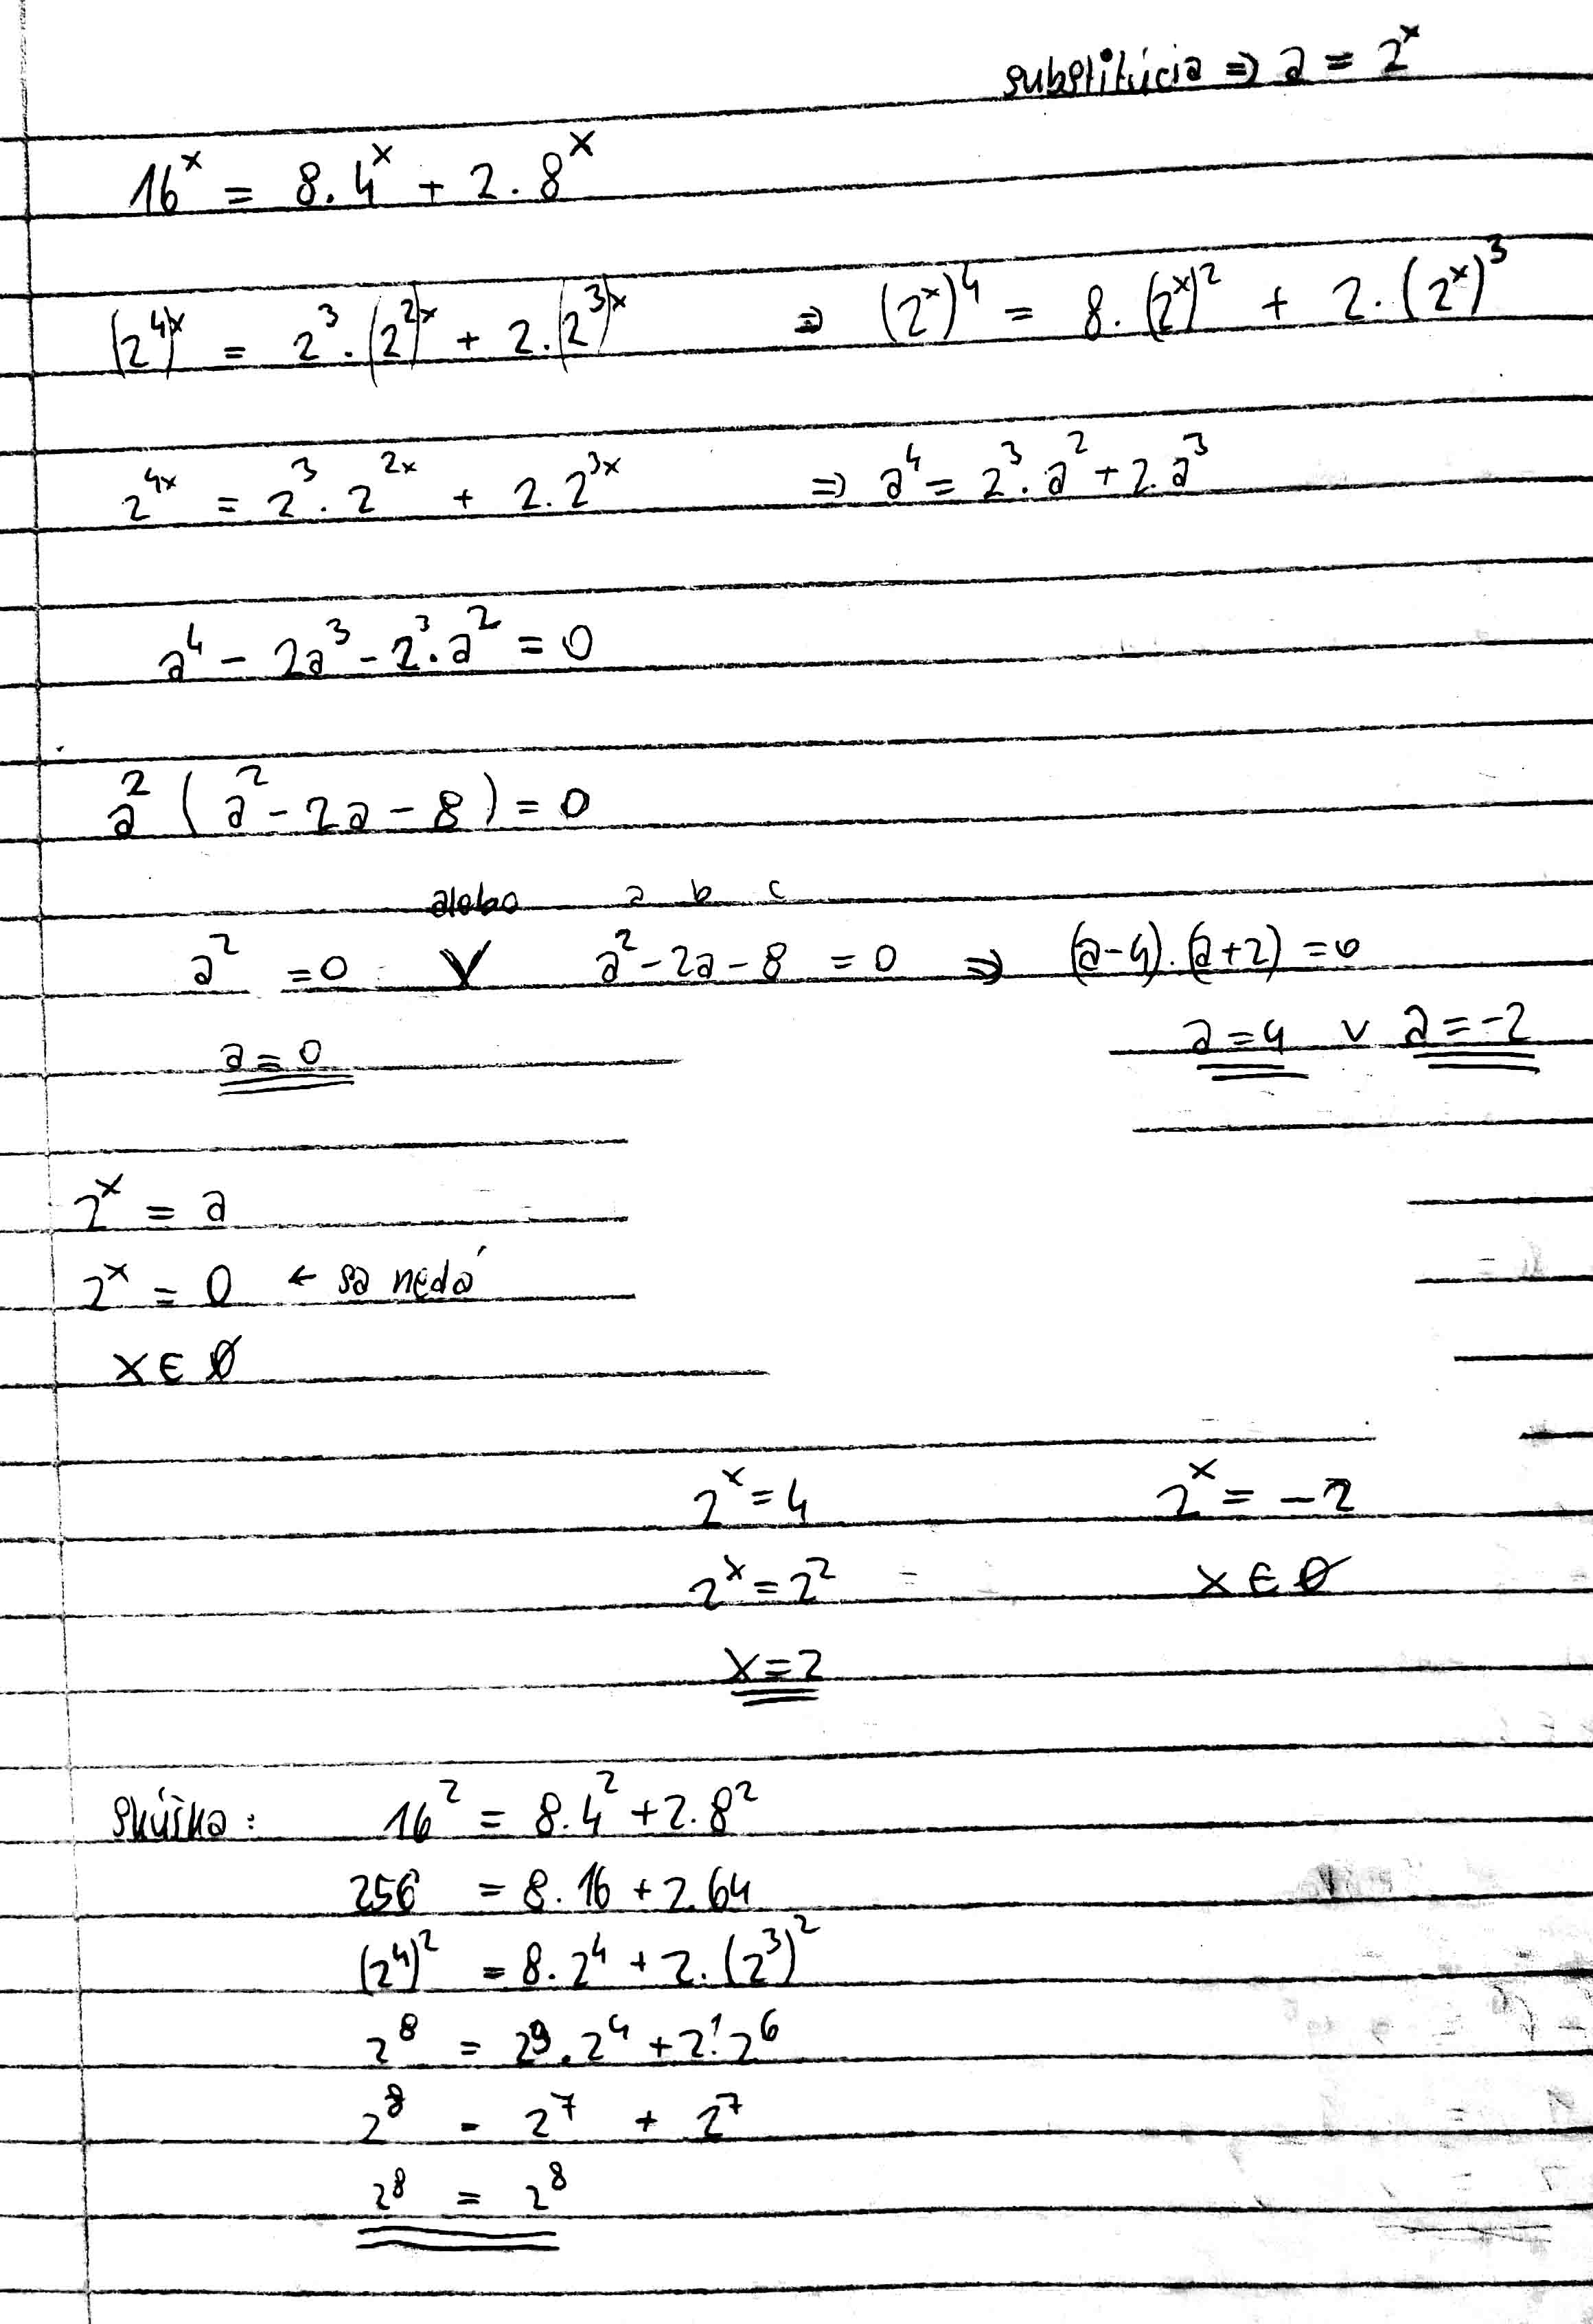 substitúcia ⇒ a = 2^x
16^x = 8.4^x + 2.8^x
(2^4)^x = 2^3.(2^2)^x + 2.(2^3)^x ⇒ (2^x)^4 = 8.(2^x)^2 + 2.(2^x)^3
2^4x = 2^3.2^2x + 2.2^3x ⇒ a^4 = 2^3.a^2 + 2.a^3
a^4 - 2a^3 - 2^3.a^2 = 0
a^2 (a^2 - 2a - 8) = 0
alebo a b c
a^2 = 0 V a^2 - 2a - 8 = 0 ⇒ (a-4).(a+2) = 0
a = 0 a = 4 v a = -2
2^x = a
2^x = 0 ← sa nedá
x ∈ ∅
2^x = 4 2^x = -2
2^x = 2^2 x ∈ ∅
x = 2
skúška: 16^2 = 8.4^2 + 2.8^2
256 = 8.16 + 2.64
(2^4)^2 = 8.2^4 + 2.(2^3)^2
2^8 = 2^3.2^4 + 2^1.2^6
2^8 = 2^7 + 2^7
2^8 = 2^8